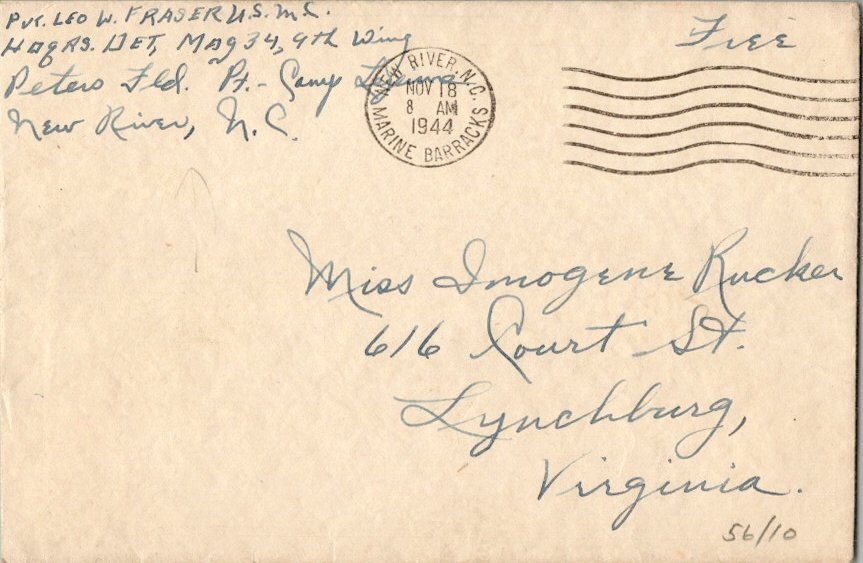 Pvt. LEO W. FRASER U.S.M.C.
Hdqrs. DET, Mag 34, 9th Wing
Peters Fld. Pt. - Camp Lejeune
New River, N.C.
Free
NEW RIVER, N.C.
NOV 18
8 AM
1944
MARINE BARRACKS
Miss Imogene Rucker
616 Court St.
Lynchburg,
Virginia.
56/10